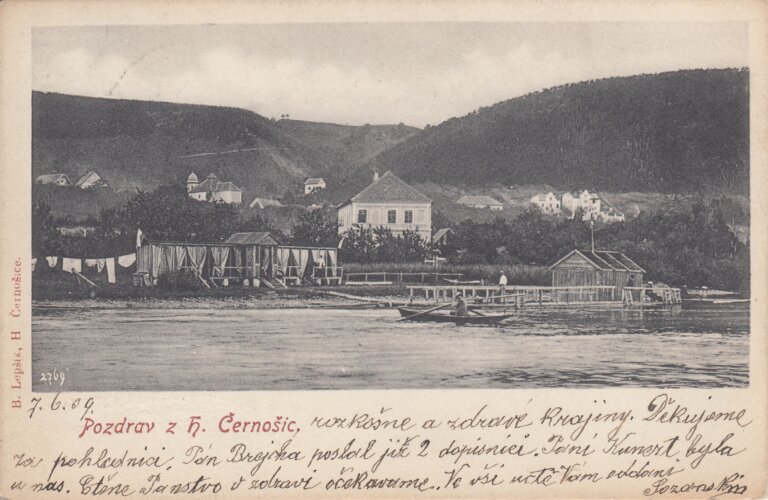 B. Lepšík, H. Černošice.
2769
7.6.09
Pozdrav z H. Černošic, rozkošne a zdravé krajiny. Děkujeme
za pohlednici. Pán Brejcha poslal již 2 dopisnici. Paní Kunert byla
u nas. Ctěne Panstvo v zdravi očekavame. Ve vší uctě Vam oddani